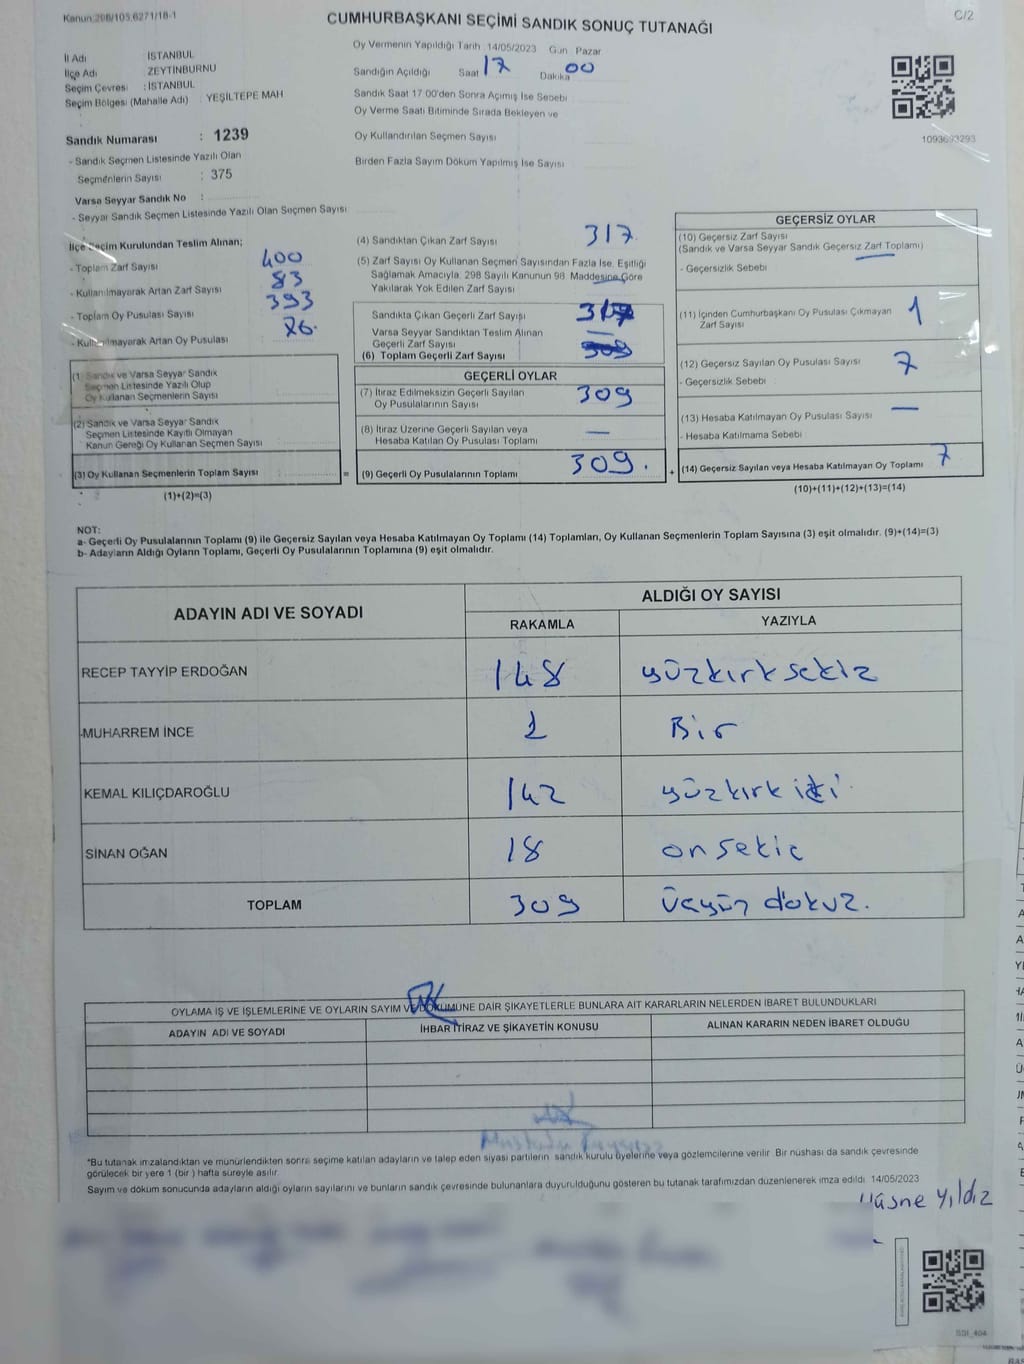 Kanun:298/105,6271/18-1
CUMHURBAŞKANI SEÇİMİ SANDIK SONUÇ TUTANAĞI
C/2
İl Adı İSTANBUL
İlçe Adı ZEYTİNBURNU
Seçim Çevresi :İSTANBUL
Seçim Bölgesi (Mahalle Adı) YEŞİLTEPE MAH
Oy Vermenin Yapıldığı Tarih 14/05/2023 Gün Pazar
Sandığın Açıldığı Saat 17 Dakika 00
Sandık Saat 17 00'den Sonra Açımış İse Sebebi
Oy Verme Saati Bitiminde Sırada Bekleyen ve
Oy Kullandırılan Seçmen Sayısı
Birden Fazla Sayım Döküm Yapılmış İse Sayısı
1093693293
Sandık Numarası : 1239
- Sandık Seçmen Listesinde Yazılı Olan
Seçmenlerin Sayısı : 375
Varsa Seyyar Sandık No :
- Seyyar Sandık Seçmen Listesinde Yazılı Olan Seçmen Sayısı
İlçe Seçim Kurulundan Teslim Alınan;
- Toplam Zarf Sayısı 400
- Kullanılmayarak Artan Zarf Sayısı 83
- Toplam Oy Pusulası Sayısı 393
- Kullanılmayarak Artan Oy Pusulası 76.
(1) Sandık ve Varsa Seyyar Sandık
Seçmen Listesinde Yazılı Olup
Oy Kullanan Seçmenlerin Sayısı
(2) Sandık ve Varsa Seyyar Sandık
Seçmen Listesinde Kayıtlı Olmayan
Kanun Gereği Oy Kullanan Seçmen Sayısı
(3) Oy Kullanan Seçmenlerin Toplam Sayısı =
(1)+(2)=(3)
(4) Sandıktan Çıkan Zarf Sayısı 317
(5) Zarf Sayısı Oy Kullanan Seçmen Sayısından Fazla İse, Eşitliği
Sağlamak Amacıyla 298 Sayılı Kanunun 98 Maddesine Göre
Yakılarak Yok Edilen Zarf Sayısı —
Sandıkta Çıkan Geçerli Zarf Sayısı 317
Varsa Seyyar Sandıktan Teslim Alınan —
Geçerli Zarf Sayısı
(6) Toplam Geçerli Zarf Sayısı 309
GEÇERLİ OYLAR
(7) İtiraz Edilmeksizin Geçerli Sayılan
Oy Pusulalarının Sayısı 309
(8) İtiraz Üzerine Geçerli Sayılan veya
Hesaba Katılan Oy Pusulası Toplamı —
(9) Geçerli Oy Pusulalarının Toplamı 309. +
GEÇERSİZ OYLAR
(10) Geçersiz Zarf Sayısı
(Sandık ve Varsa Seyyar Sandık Geçersiz Zarf Toplamı) —
- Geçersizlik Sebebi
(11) İçinden Cumhurbaşkanı Oy Pusulası Çıkmayan
Zarf Sayısı 1
(12) Geçersiz Sayılan Oy Pusulası Sayısı 7
- Geçersizlik Sebebi
(13) Hesaba Katılmayan Oy Pusulası Sayısı —
- Hesaba Katılmama Sebebi
(14) Geçersiz Sayılan veya Hesaba Katılmayan Oy Toplamı 7
(10)+(11)+(12)+(13)=(14)
NOT:
a- Geçerli Oy Pusulalarının Toplamı (9) ile Geçersiz Sayılan veya Hesaba Katılmayan Oy Toplamı (14) Toplamları, Oy Kullanan Seçmenlerin Toplam Sayısına (3) eşit olmalıdır. (9)+(14)=(3)
b- Adayların Aldığı Oyların Toplamı, Geçerli Oy Pusulalarının Toplamına (9) eşit olmalıdır.
ADAYIN ADI VE SOYADI ALDIĞI OY SAYISI
RAKAMLA YAZIYLA
RECEP TAYYİP ERDOĞAN 148 yüzkırksekiz
MUHARREM İNCE 1 Bir
KEMAL KILIÇDAROĞLU 142 yüzkırk iki
SİNAN OĞAN 18 onsekiz
TOPLAM 309 üçyüz dokuz.
OYLAMA İŞ VE İŞLEMLERİNE VE OYLARIN SAYIM VE DÖKÜMÜNE DAİR ŞİKAYETLERLE BUNLARA AİT KARARLARIN NELERDEN İBARET BULUNDUKLARI
ADAYIN ADI VE SOYADI İHBAR İTİRAZ VE ŞİKAYETİN KONUSU ALINAN KARARIN NEDEN İBARET OLDUĞU
*Bu tutanak imzalandıktan ve mühürlendikten sonra seçime katılan adayların ve talep eden siyasi partilerin sandık kurulu üyelerine veya gözlemcilerine verilir Bir nüshası da sandık çevresinde
görülecek bir yere 1 (bir) hafta süreyle asılır.
Sayım ve döküm sonucunda adayların aldığı oyların sayılarını ve bunların sandık çevresinde bulunanlara duyurulduğunu gösteren bu tutanak tarafımızdan düzenlenerek imza edildi 14/05/2023
Hüsne Yıldız